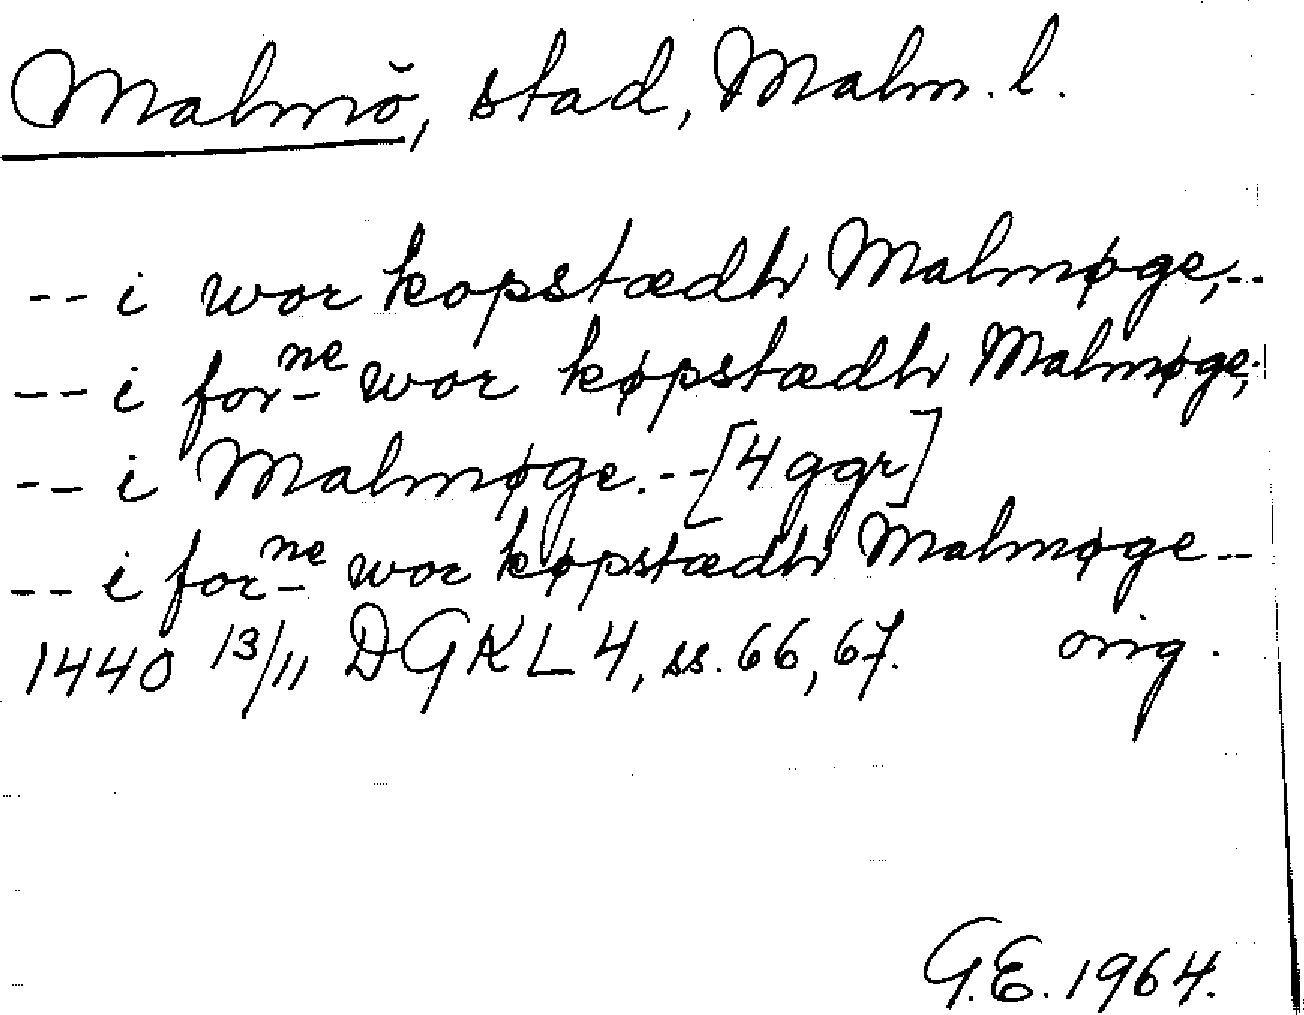 Malmö, stad, Malm. l.
-- i wor kopstædh Malmøge,--
-- i forⁿᵉ wor køpstædh Malmøge,
-- i Malmøge.--[4 ggr]
-- i forⁿᵉ wor køpstædh Malmøge--
1440 13/11 DGKL 4, ss. 66, 67. orig.
G.E. 1964.